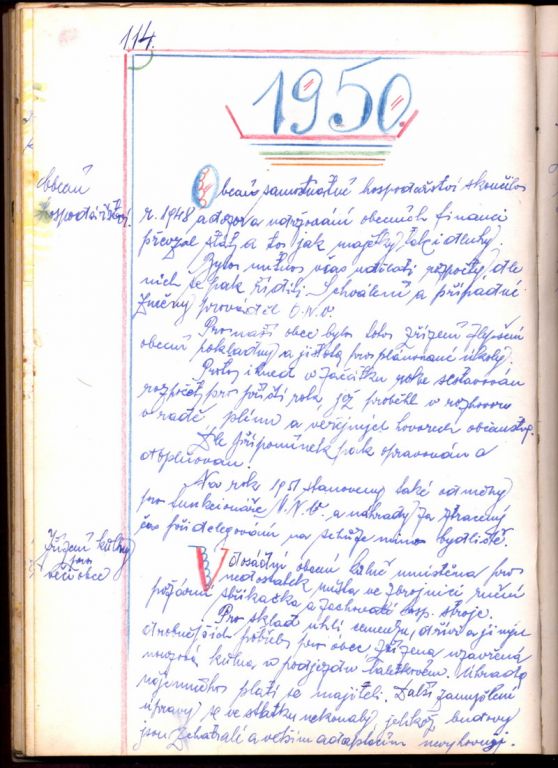 114.
1950.
Obecní
hospodářství.
Obecní samostatné hospodářství skončilo
r. 1948 a dozor a udržování obecních financí
převzal stát, a to jak majetky tak i dluhy.
Bylo nutno včas udělati rozpočty, dle
nich se pak řídili. Schválení a případné
změny prováděl O.N.V.
Pro naší obec bylo toto zřízení zlepšení
obecní pokladny a jistota pro plánované úkoly.
Proto ihned v začátku roku sestavován
rozpočet pro příští rok, jež proběhl v rozhovoru
v radě, plénu a veřejných hovorech občanstva.
Dle připomínek pak opravován a
doplňován.
Na rok 1951 stanoveny také odměny
pro funkcionáře M.N.V. a náhrady za ztracený
čas při delegování na schůze mimo bydliště.
Zřízení kůlny
pro
věci obce
V dosádní obecní kůlně umístěna pro
nedostatek místa ve zbrojnici ruční
požární stříkačka a zachovalé hosp. stroje.
Pro sklad uhlí, cementu, dříví a jiných
drobnějších potřeb pro obec zřízena uzavřená
nouzová kůlna v podjezdu statkovém. Úhrada
nájemného platí se majiteli. Další zamýšlení
úpravy se ve statku nekonaly, jelikož budovy
jsou zchátralé a větším adaptacím nevyhovují.